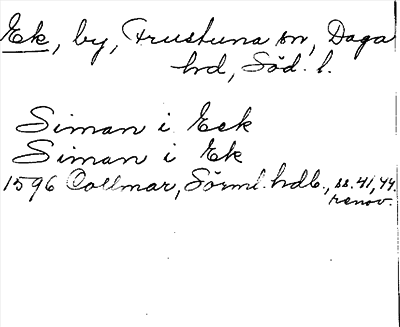 Ek, by, Frustuna sn, Daga
hd, Söd. l.
Siman i Eek
Siman i Ek
1596 Collmar, Sörml. hdlb., ss. 41, 44.
renov.